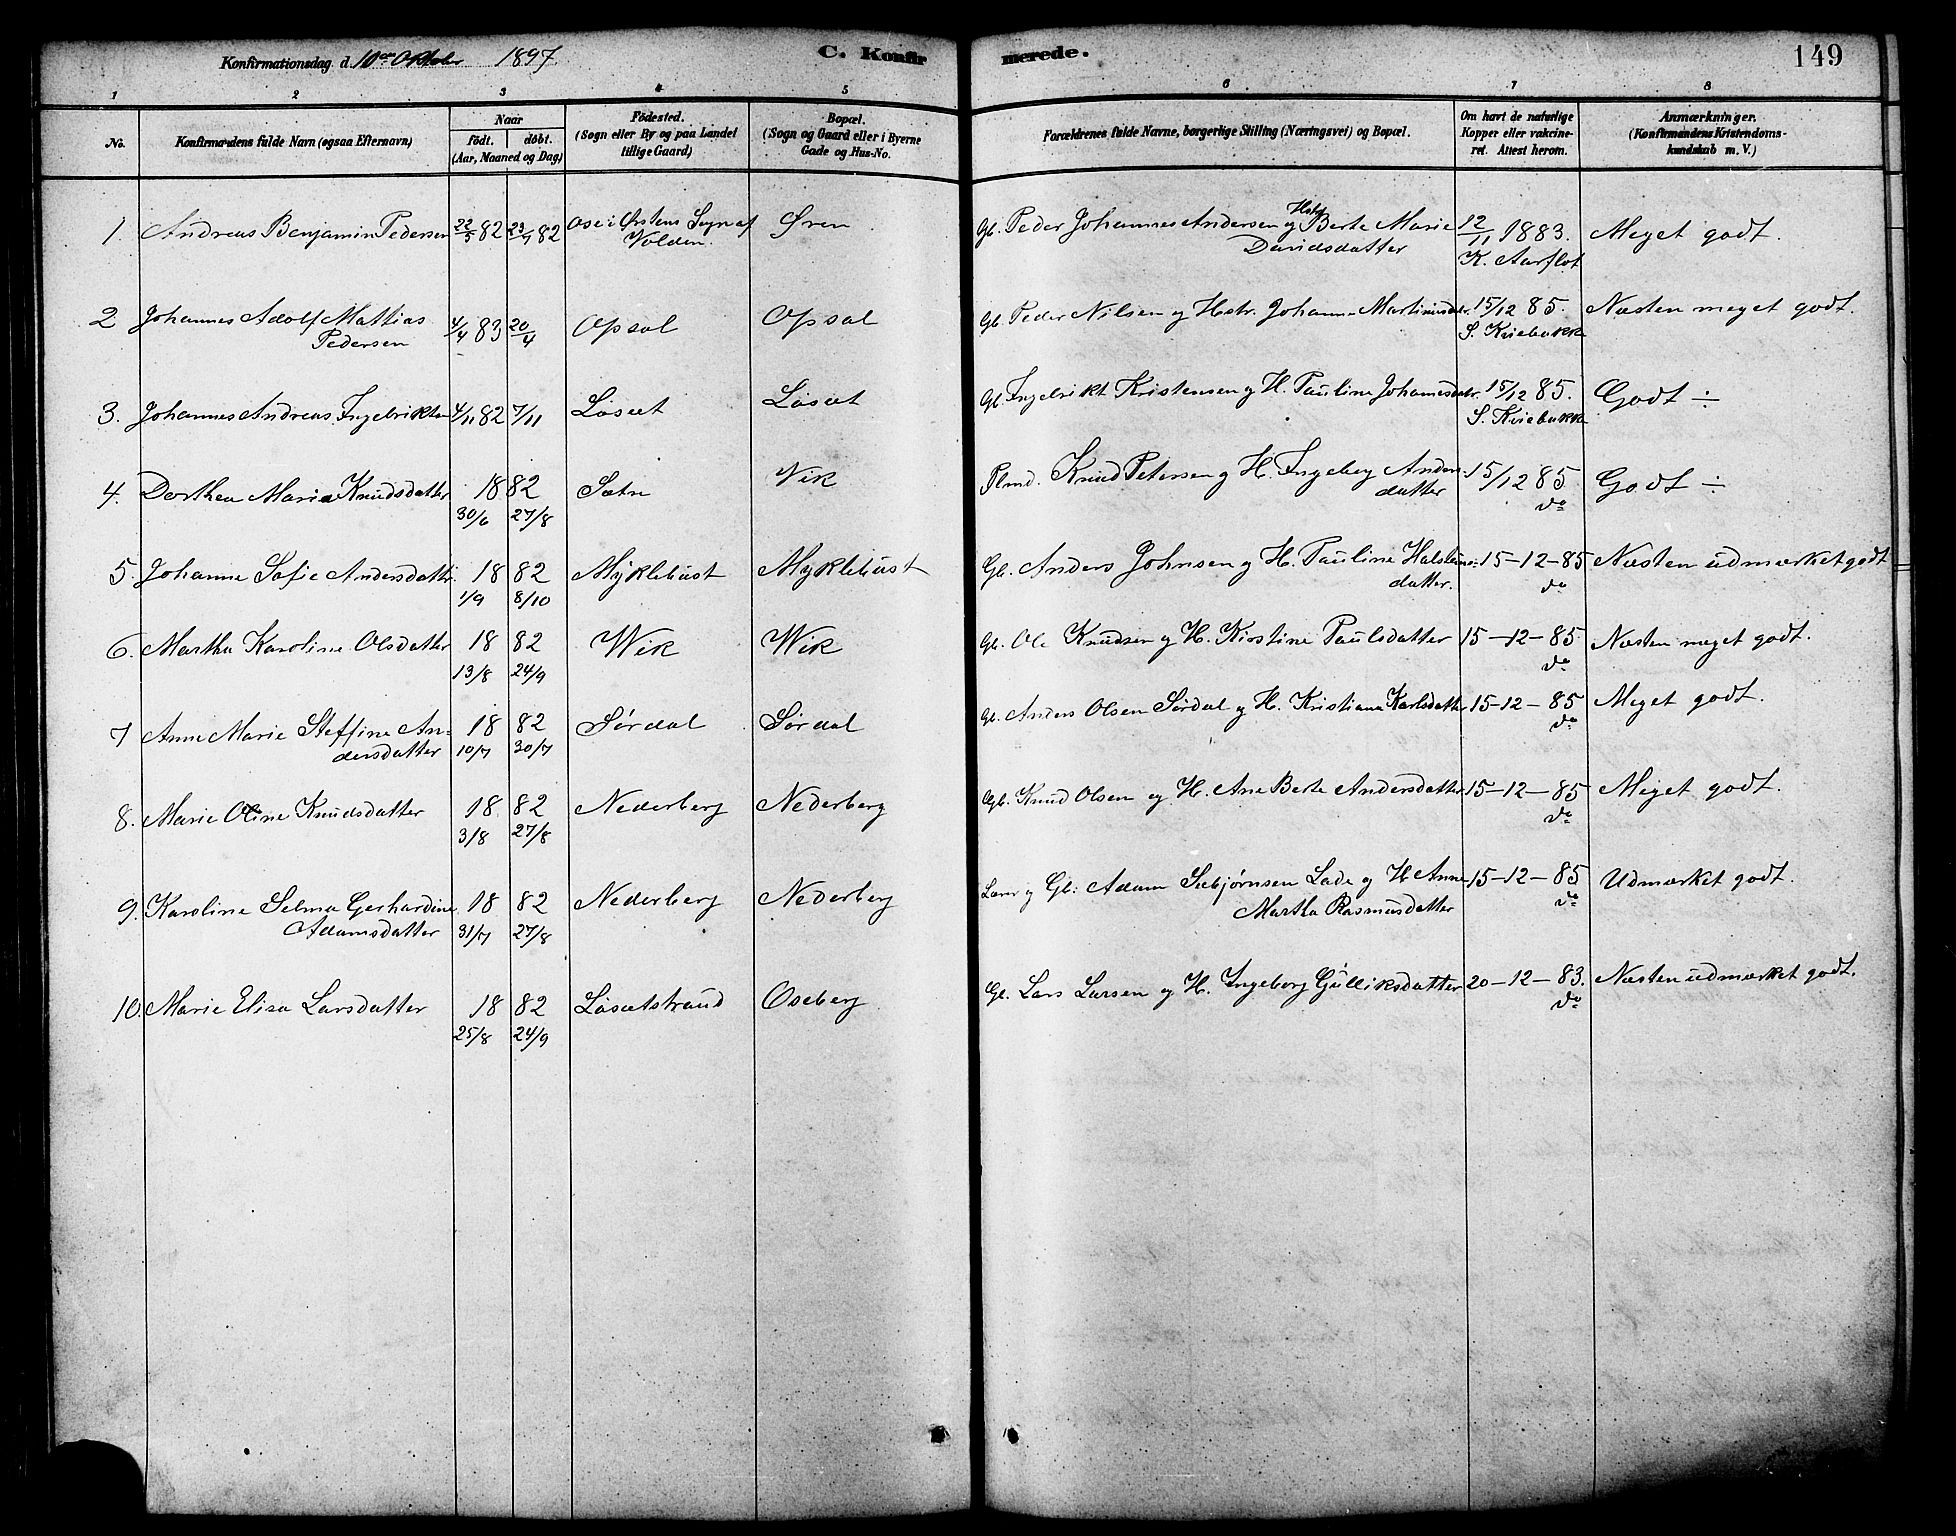 Konfirmationsdag d. 10de Oktober 1897
C. Konfir
merede.
149
1 2 3 4 5 6 7 8
No.
Konfirmandens fulde Navn (ogsaa Efternavn)
Naar
födt. döbt.
(Aar, Maaned og Dag)
Födested.
(Sogn eller By og paa Landet
tillige Gaard)
Bopæl.
(Sogn og Gaard eller i Byerne
Gade og Hus-No.
Forældrenes fulde Navne, borgerlige Stilling (Næringsvei) og Bopæl.
Om havt de naturlige
Kopper eller vakcine-
ret. Attest herom.
Anmærkninger.
(Konfirmandens Kristendoms-
kundskab m. V.)
1. Andreas Benjamin Pedersen 22/5 82 23/7 82 Ose i Ørstens Sogn af Øren. Gb. Peder Johannes Andersen og Hstr Berte Marie 12/11 1883. Meget godt.
Volden. Davidsdatter K. Aarflot
2 Johannes Adolf Mattias 4/4 83 20/4 Opsal Opsal Gb. Peder Nilsen og Hstr. Johanne Martinusdtr. 15/12 85. Næsten meget godt.
Pedersen S. Kviebakke
3. Johannes Andreas Ingebrikts 4/11 82 7/11 Løsæt Løsæt Gb. Ingebrikt Kristensen og H. Pauline Johannesdtr. 15/12 85. Godt ÷
S. Kviebakke
4. Dorthea Maria Knudsdatter 18 82 Sætre Vik Plmd. Knud Petersen og H. Ingeborg Anders- 15/12 85 Godt ÷
30/6 27/8 datter do
5. Johanne Sofie Andersdatter 18 82 Myklebust Myklebust Gb. Anders Johnsen og H. Pauline Halsteins- 15-12-85 Næsten udmærket godt
1/9 8/10 datter. do
6. Martha Karoline Olsdatter 18 82 Wik Wik Gb. Ole Knudsen og H. Kirstine Paulsdatter 15-12-85 Næsten meget godt.
13/8 24/9 do
7 Anne Marie Steffine An= 18 82 Sørdal Sørdal Gb. Anders Olsen Sørdal og H. Kristiana Karlsdatter 15-12-85 Meget godt.
dersdatter 10/7 30/7 do
8. Marie Oline Knudsdatter 18 82 Nederberg Nederberg Gb. Knud Olsen og H. Ane Berte Andersdatter 15-12-85 Meget godt.
3/8 27/8 do
9. Karoline Selma Gerhardine 18 82 Nederberg Nederberg og Gb: Adam Sæbjørnsen Lade og H Anne 15-12-85 Udmærket godt.
Adamsdatter 31/7 27/8 Martha Rasmusdatter do
10. Marie Elisa Larsdatter 18 82 Løsætstrand Oseberg Gb. Lars Larsen og H. Ingeborg Gulliksdatter 20-12-83. Næsten udmærket godt.
25/8 24/9 do